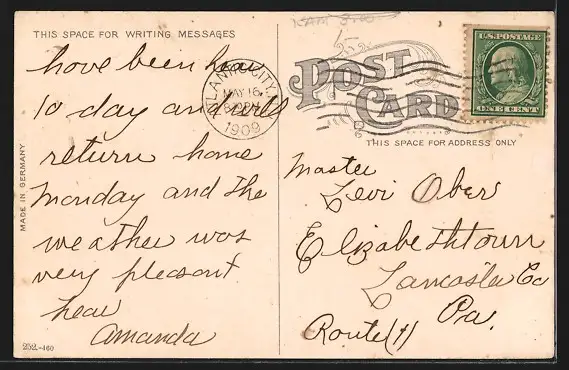 THIS SPACE FOR WRITING MESSAGES
have been hear
10 day and will
return home
Monday and the
weather was
very pleasant
hear
Amanda
MADE IN GERMANY
252.-460
ATLANTIC CITY, N.J.
MAY 16
8 PM
1909
POST
CARD
THIS SPACE FOR ADDRESS ONLY
U.S. POSTAGE
ONE CENT
Master
Levi Ober
Elizabethtown
Lancaster Co
Pa.
Route (1)